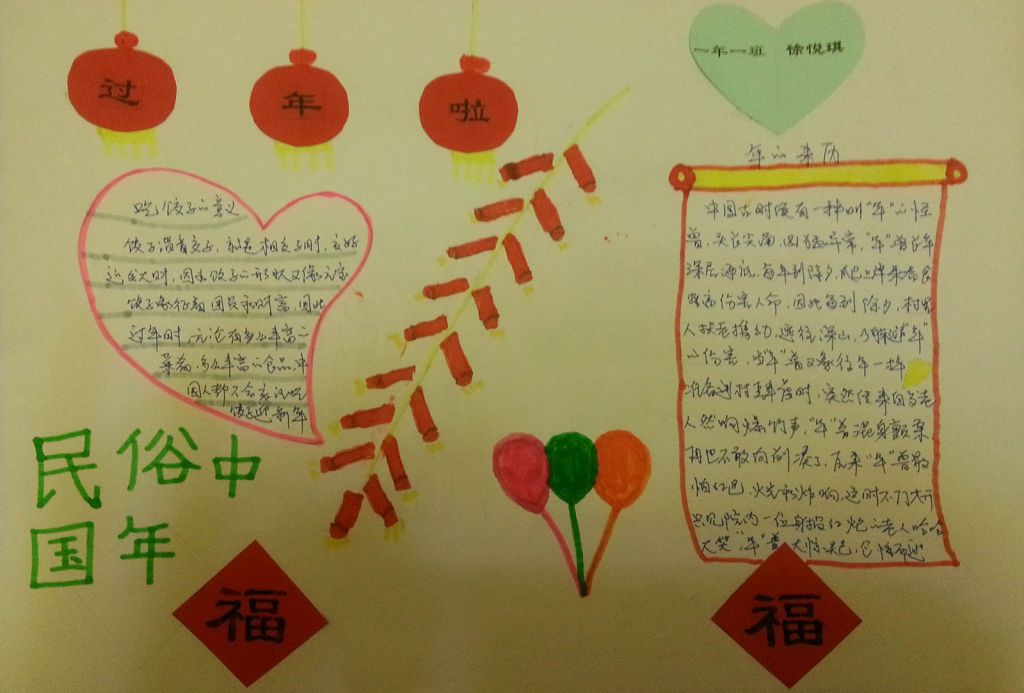 过 年 啦
一年一班 徐悦琪
吃饺子的意义
饺子谐音交子,
饺子象征着团员和财富,因此
过年时,无论有多么丰富的
菜肴,多么丰富的食品,中
国人都不会忘记吃
饺子迎新年
民俗中
国年
年的来历
中国古时侯有一种叫"年"的怪
兽,头长尖角,凶猛异常,"年"兽长年
深居海底,每年到除夕,爬上岸来吞食
伤害人命,因此每到除夕,村里
人扶老携幼,逃往深山,
的伤害,当"年"兽又象往年一样
准备进村 时,突然
人燃响爆竹声,"年"兽混身颤栗
再也不敢向前凑了,原来"年"兽最
怕红色,火光和炸响,这时大门大开
只见院内一位身披红袍的老人哈哈
大笑,"年"兽大惊失色,仓惶而逃
福
福